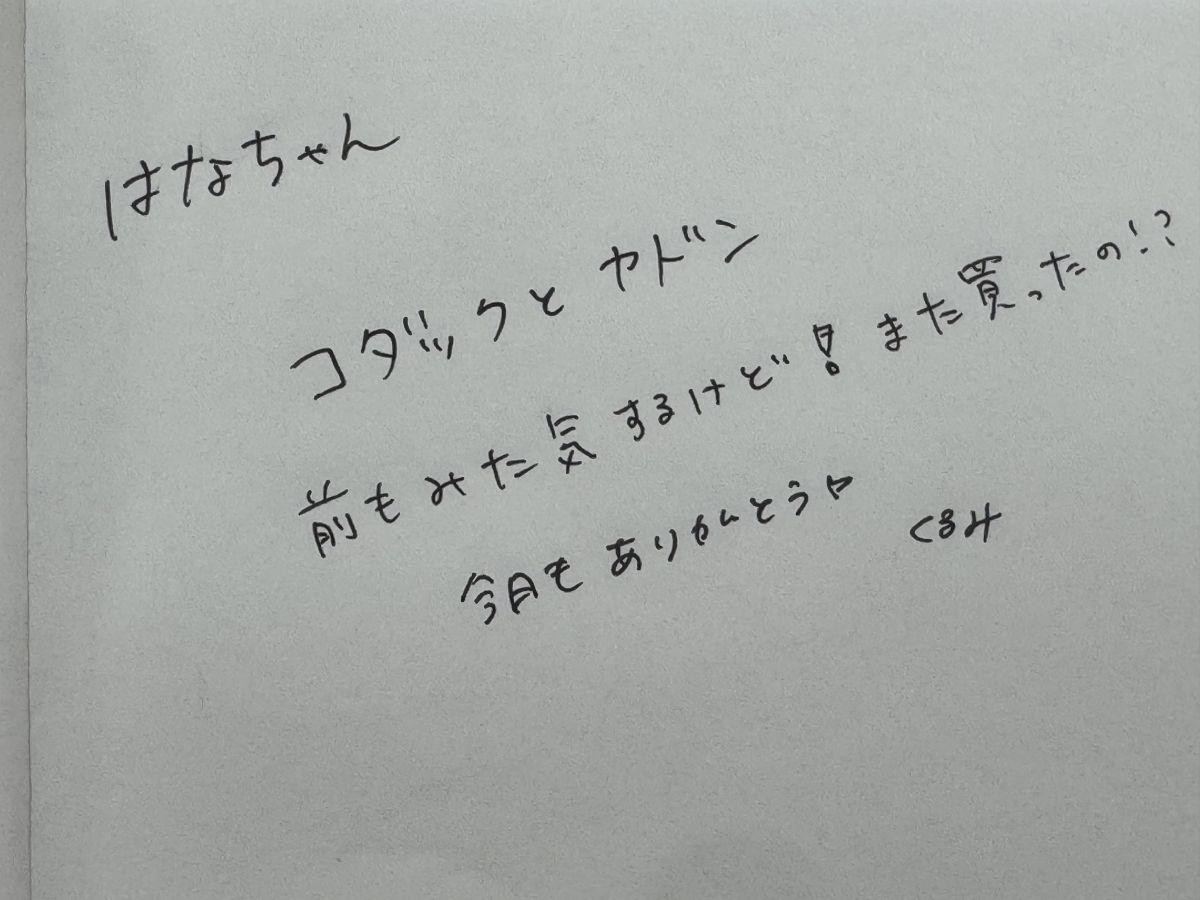 はなちゃん
コダックと ヤドン
前もみた気するけど! また買ったの!?
今月も ありがとう♡
くるみ